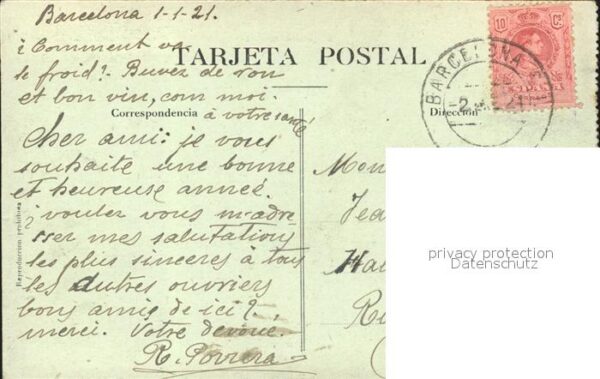 Barcelona 1-1-21.
¿Comment va
le froid? Buvez de
et bon vin, com moi.
à votre santé
TARJETA POSTAL
Correspondencia
Dirección
Cher ami: je vous
souhaite une bonne
et heureuse anneé.
¿voulez vous m'adre
sser mes salutations
les plus sinceres à tous
les autres ouvriers
bons amis de ici?
merci. Votre devoué.
R. Porrera
Reproducción prohibida
10 Cs
BARCELONA
-2 21
Mon
Jea
privacy protection
Datenschutz